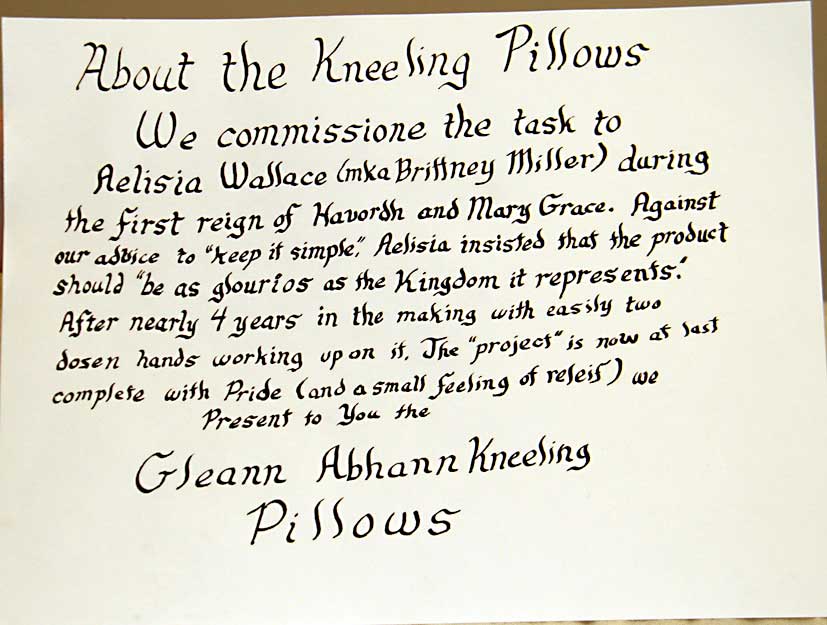 About the Kneeling Pillows
We commissione the task to
Aelisia Wallace (mka Brittney Miller) during
the first reign of Havordh and Mary Grace. Against
our advice to "keep it simple", Aelisia insisted that the product
should "be as glourios as the Kingdom it represents."
After nearly 4 years in the making with easily two
dosen hands working upon it, The "project" is now at last
complete with Pride (and a small feeling of releif) we
Present to You the
Gleann Abhann Kneeling
Pillows